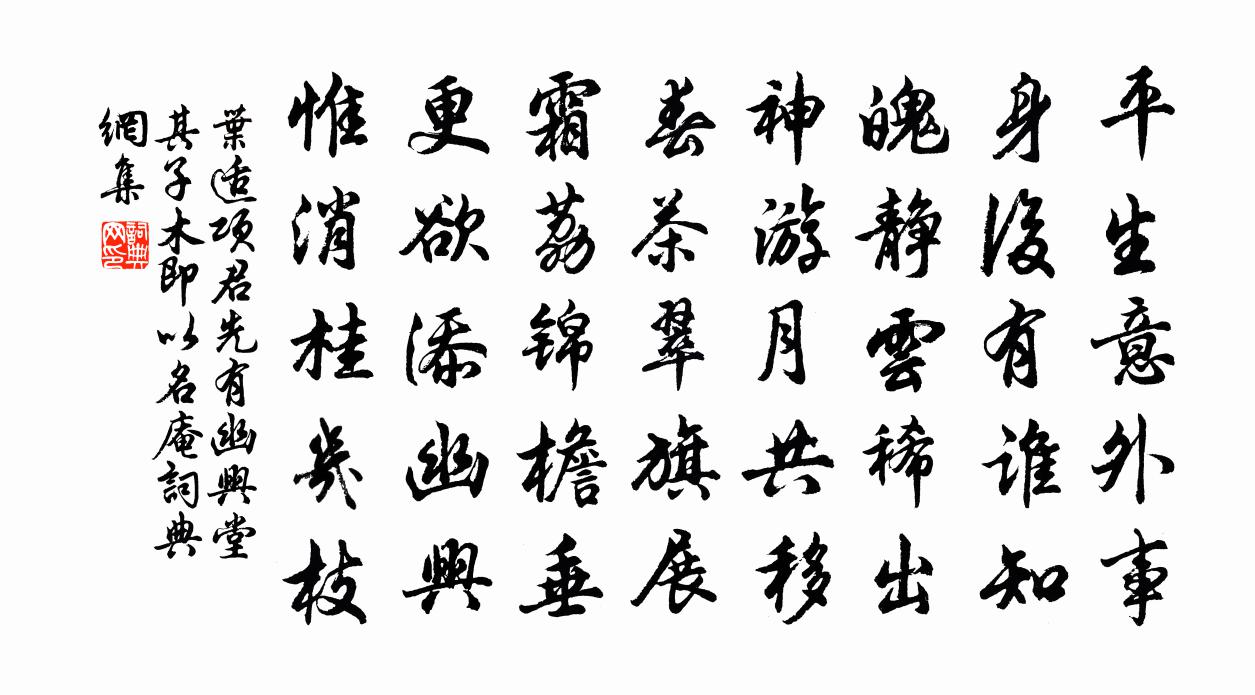 平生意外事
身後有誰知
魄靜雲稀出
神游月共移
春茶翠旗展
霜荔锦檐垂
更欲添幽興
惟消桂幾枝
葉适項君先有幽興堂
其子木即以名庵詞典
網集
詞典
网印